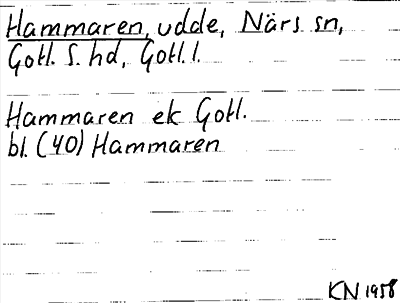 Hammaren, udde, Närs sn,
Gotl. S. hd, Gotl. l.
Hammaren ek Gotl.
bl. (40) Hammaren
KN 1958